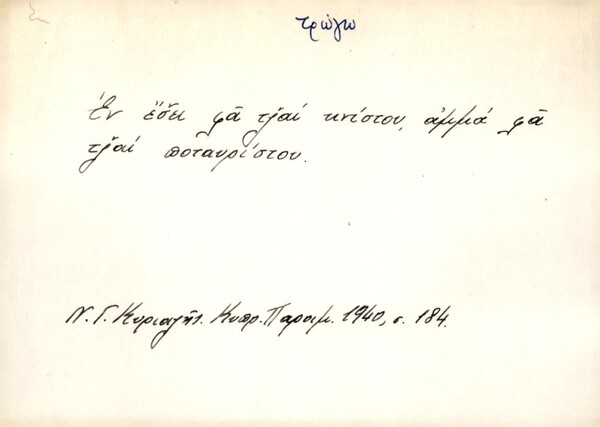 τρώγω
Ἐν ἔσ̆ει φᾶ τζ̆αί κνίστου, ἀμμά φᾶ
τζ̆αί ποταυρίστου.
Ν. Γ. Κυριαζῆς. Κυπρ. Παροιμ. 1940, σ. 184.